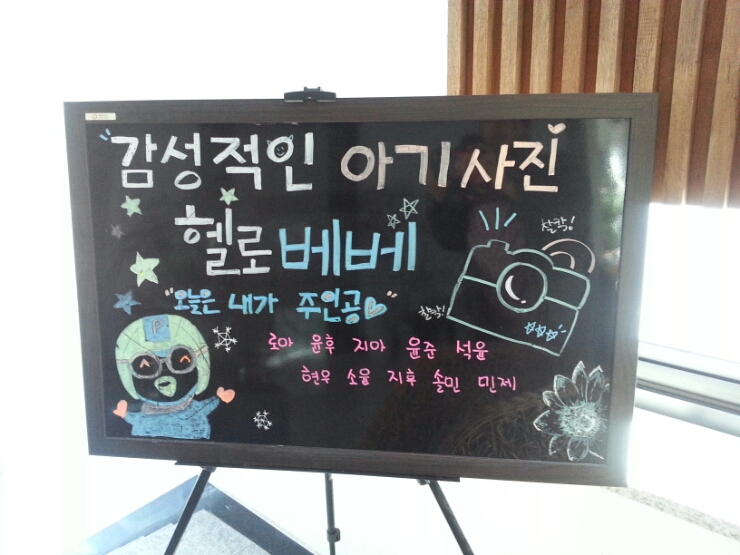 감성적인 아기사진
헬로베베
찰칵!
"오늘은 내가 주인공"
찰칵!
로아 윤후 지아 윤준 석율
현우 소율 지후 솔민 민제
P